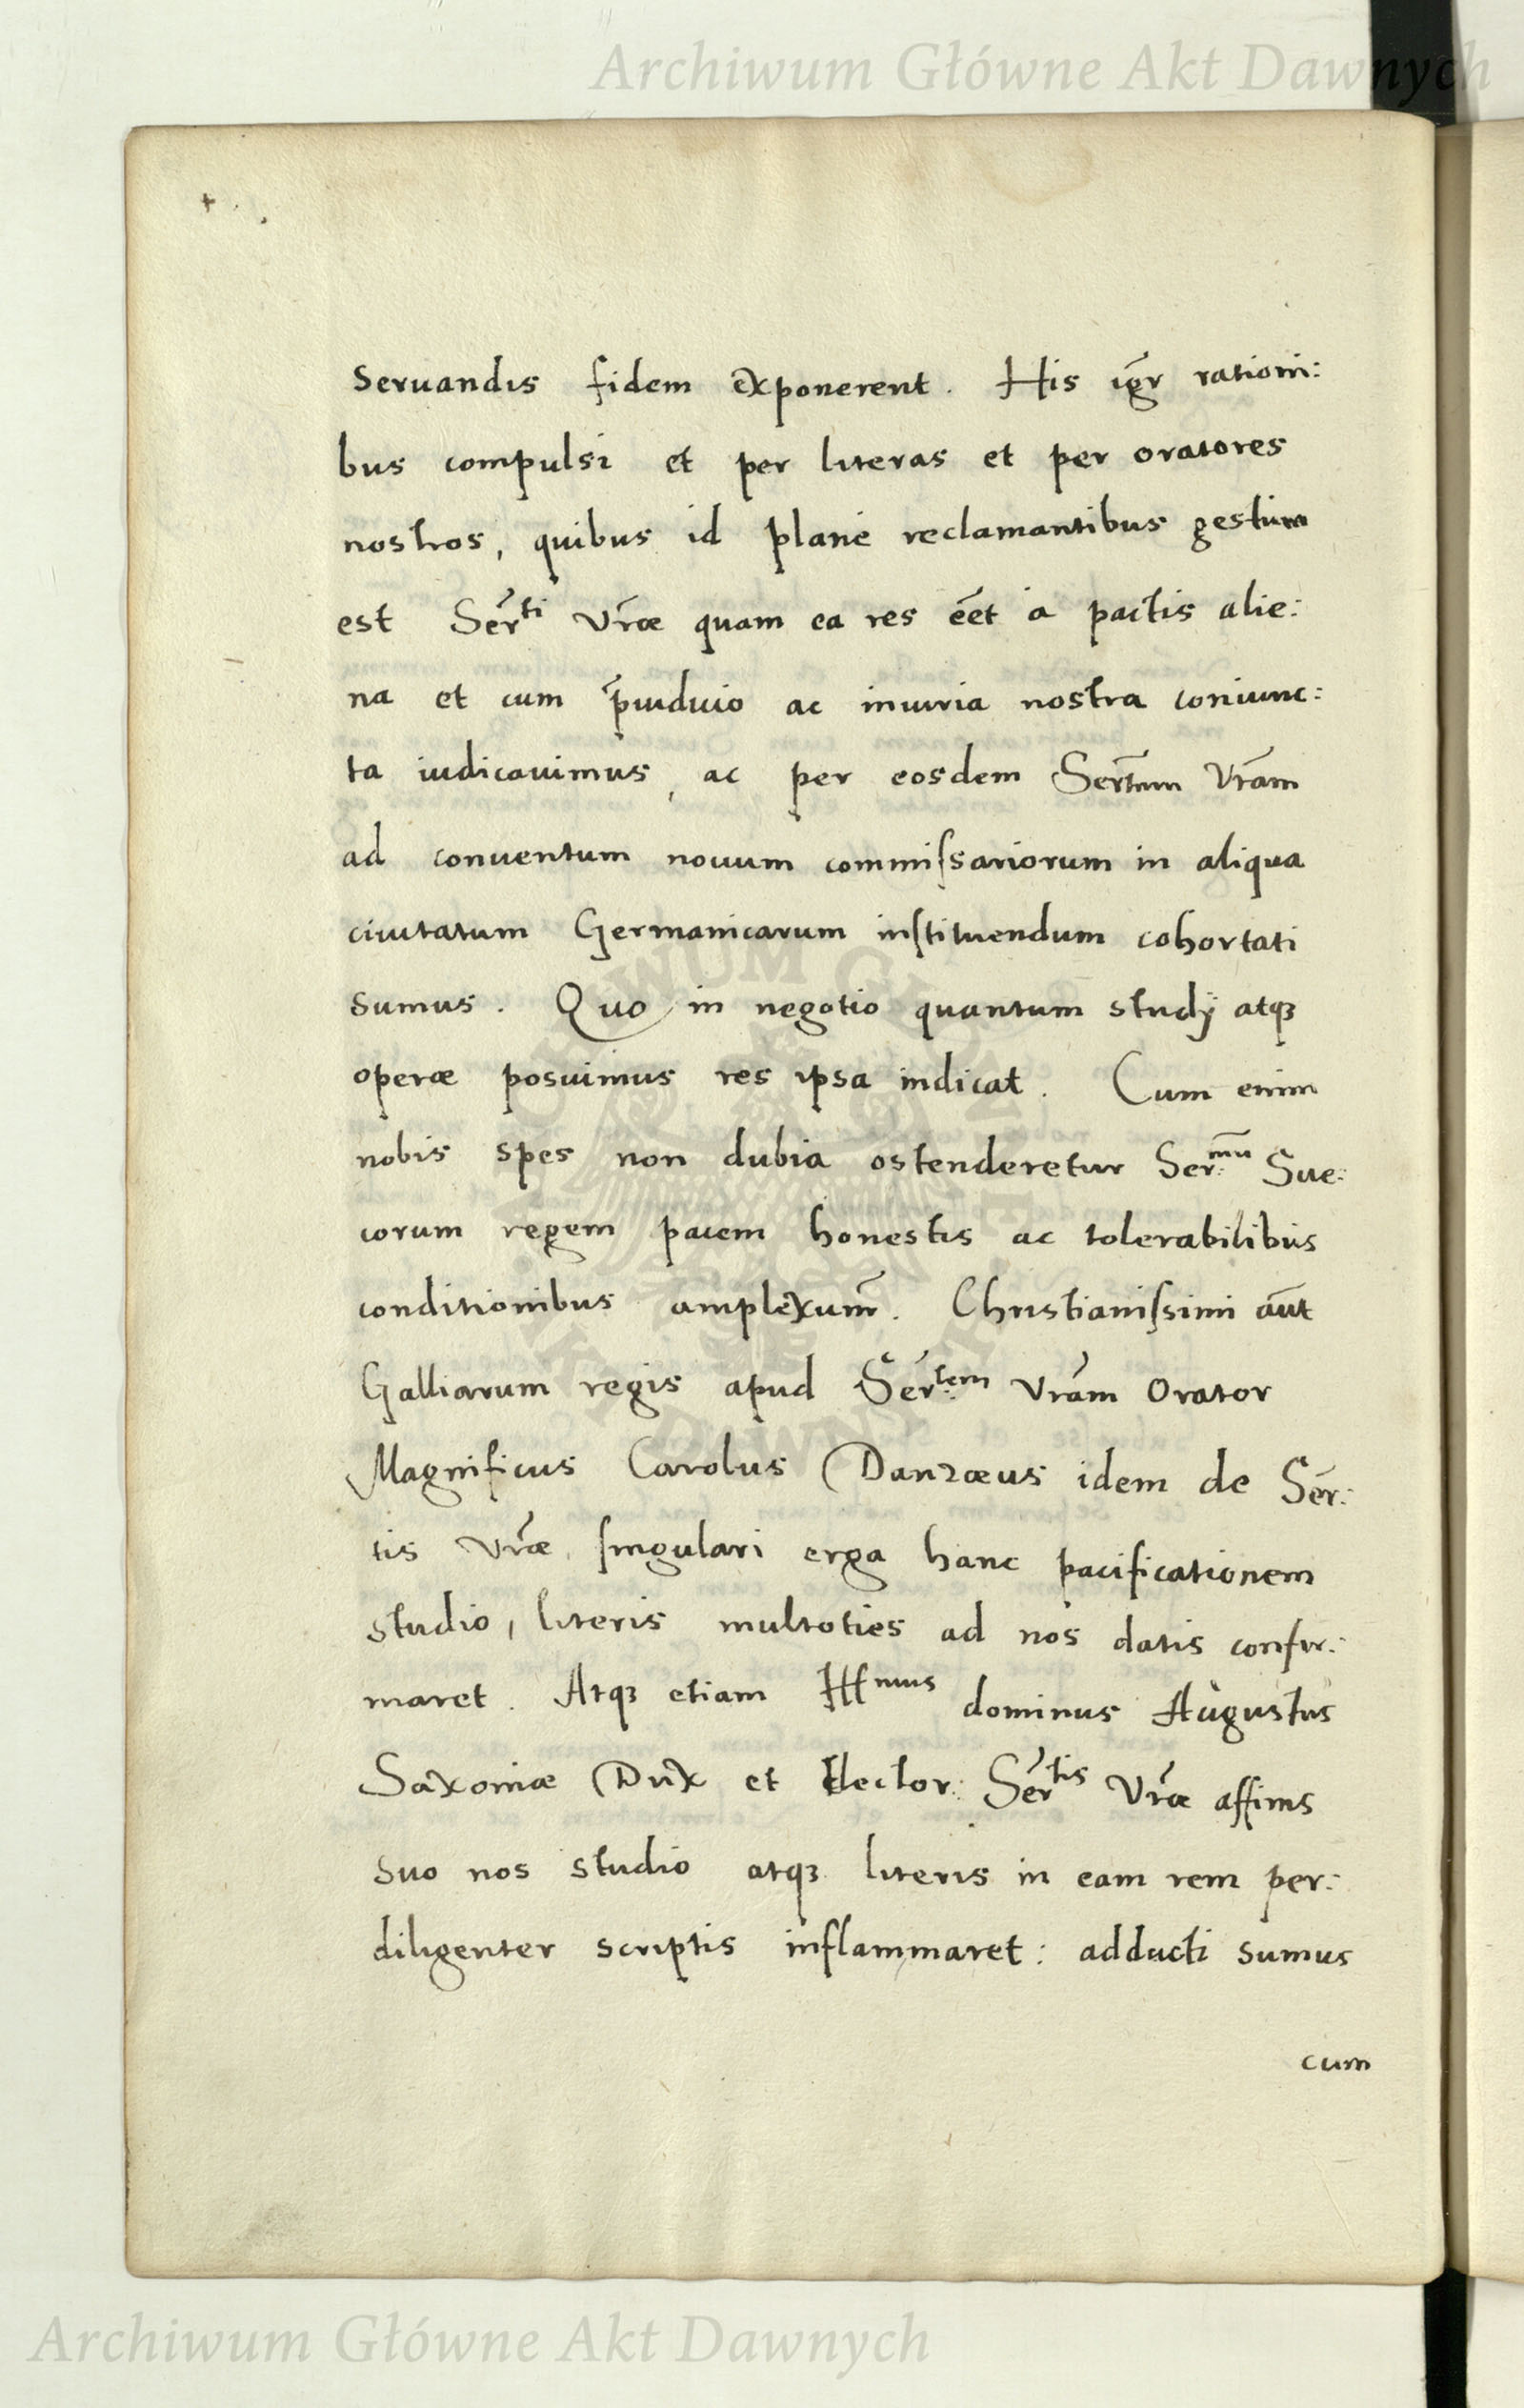 Archiwum Główne Akt Dawnych
seruandis fidem exponerent. His igr̄ rationi:
bus compulsi et per literas et per oratores
nostros, quibus id planè reclamantibus gestum
est Serti Vr̄æ quam ea res eēt à pactis alie:
na et cum p̄iudicio ac iniuria nostra coniunc:
ta iudicauimus, ac per eosdem Sertm̄ Vr̄am
ad conuentum nouum commiſsariorum in aliqua
ciuitatum Germanicarum inſtituendum cohortati
sumus. Quo in negotio quantum studij atqꝫ
operæ posuimus res ipsa indicat. Cum enim
nobis spes non dubia ostenderetur Ser:mū Sue:
corum regem pacem honestis ac tolerabilibus
conditionibus amplexum̄. Christianiſsimi aūt
Galliarum regis apud Ser:tem Vr̄am Orator
Magnificus Carolus Danzæus idem de Ser̄:
tis Vr̄æ ſingulari erga hanc pacificationem
studio, literis multoties ad nos datis confir:
maret. Atqꝫ etiam Illmus dominus Augustus
Saxoniæ Dux et Elector: Sertis Vr̄æ affinis
suo nos studio atqꝫ literis in eam rem per:
diligenter scriptis inflammaret: adducti sumus
cum
Archiwum Główne Akt Dawnych